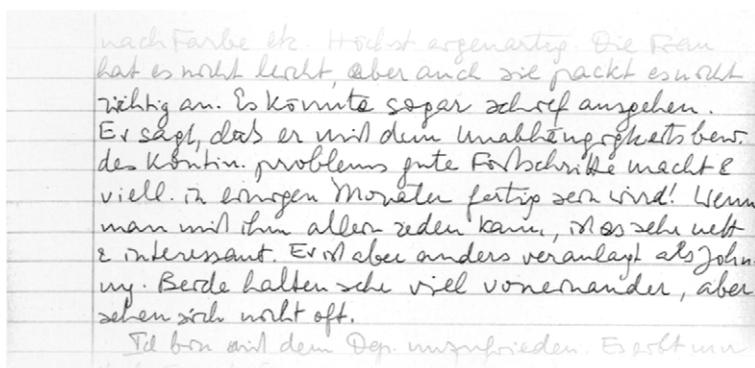 nach Farbe etc. Höchst eigenartig. Die Frau
hat es nicht leicht, aber auch sie packt es nicht
richtig an. Es könnte sogar schief ausgehen.
Er sagt, dass er mit dem Unabhängigkeitsbew.
des Kontin. problems gute Fortschritte macht &
viell. in einigen Monaten fertig sein wird! Wenn
man mit ihm allein reden kann, ist es sehr nett
& interessant. Er ist aber anders veranlagt als John-
ny. Beide halten sehr viel voneinander, aber
sehen sich nicht oft.
Ich bin mit dem Dep. unzufrieden. Es gibt nun